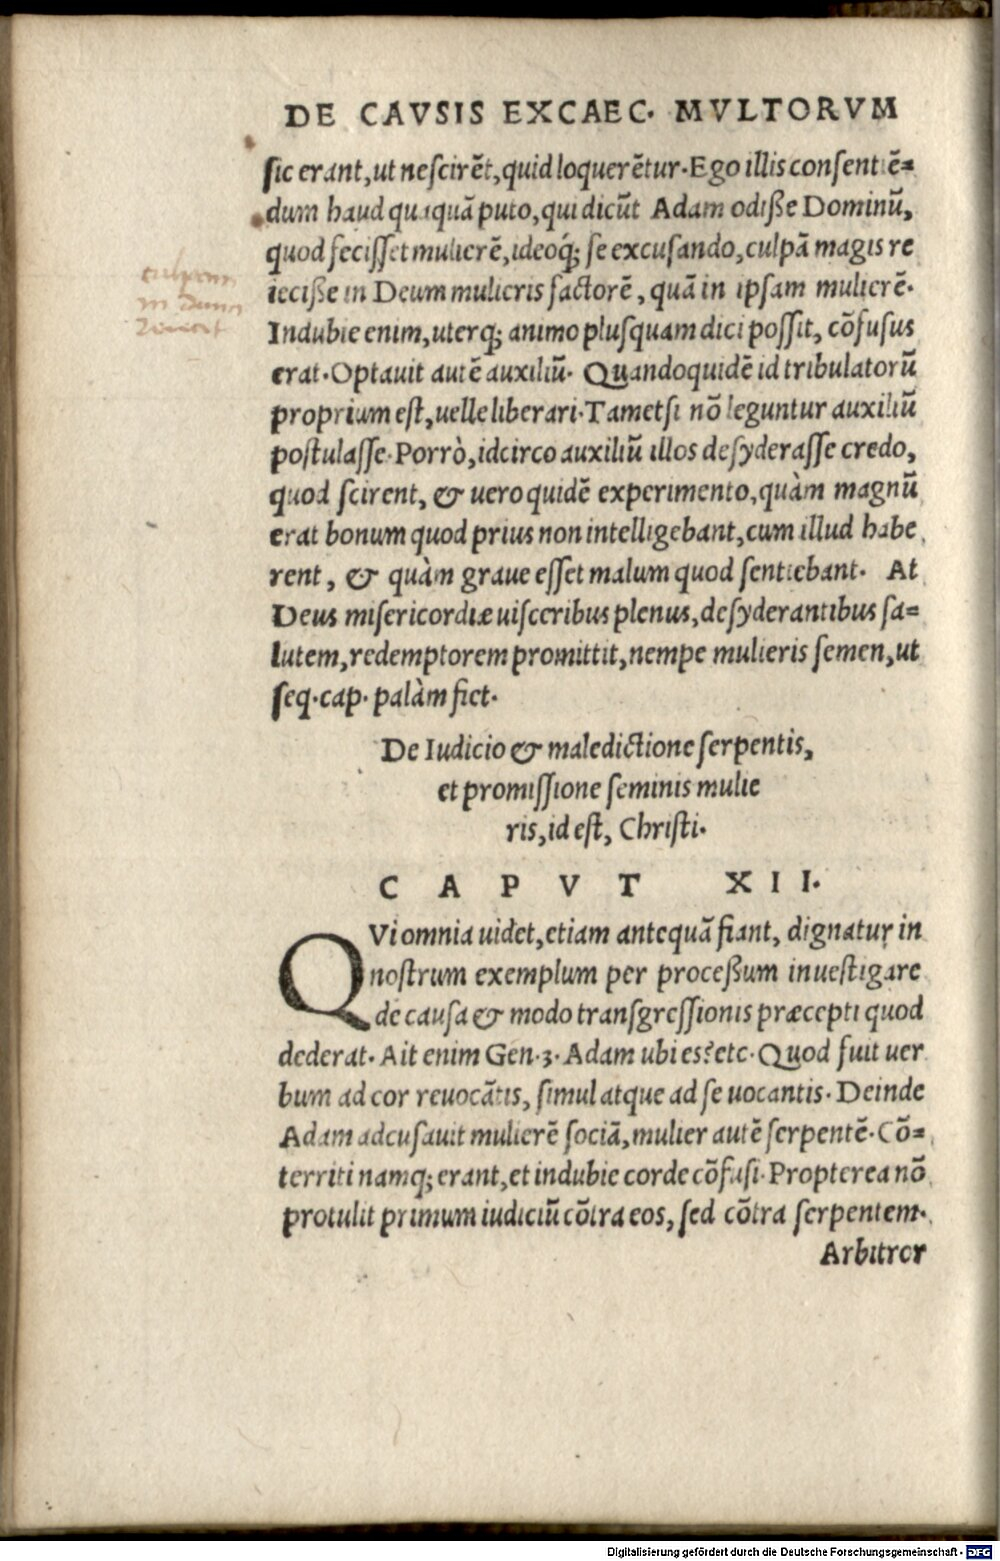 DE CAVSIS EXCAEC. MVLTORVM
sic erant, ut nescirēt, quid loquerētur. Ego illis consentiē=
dum haud quaquā puto, qui dicūt Adam odiße Dominū,
quod fecisset mulierē, ideoq́; se excusando, culpā magis re
ieciße in Deum mulieris factorē, quā in ipsam mulierē.
Indubie enim, uterq; animo plusquam dici possit, cōfusus
erat. Optauit autē auxiliū. Quandoquidē id tribulatorū
proprium est, uelle liberari. Tametsi nō leguntur auxiliū
postulasse. Porrò, idcirco auxiliū illos desyderasse credo,
quod scirent, & uero quidē experimento, quàm magnū
erat bonum quod prius non intelligebant, cum illud habe
rent, & quàm graue esset malum quod sentiebant. At
Deus misericordiæ uisceribus plenus, desyderantibus sa=
lutem, redemptorem promittit, nempe mulieris semen, ut
seq. cap. palàm fiet.
De Iudicio & maledictione serpentis,
et promissione seminis mulie
ris, id est, Christi.
CAPVT XII.
QVi omnia uidet, etiam antequā fiant, dignatur in
nostrum exemplum per proceßum inuestigare
de causa & modo transgressionis præcepti quod
dederat. Ait enim Gen. 3. Adam ubi es? etc. Quod fuit uer
bum ad cor reuocātis, simul atque ad se uocantis. Deinde
Adam adcusauit mulierē sociā, mulier autē serpentē. Cō=
territi namq; erant, et indubie corde cōfusi. Propterea nō
protulit primum iudiciū cōtra eos, sed cōtra serpentem.
Arbitror
culpam
in
Digitalisierung gefördert durch die Deutsche Forschungsgemeinschaft - DFG